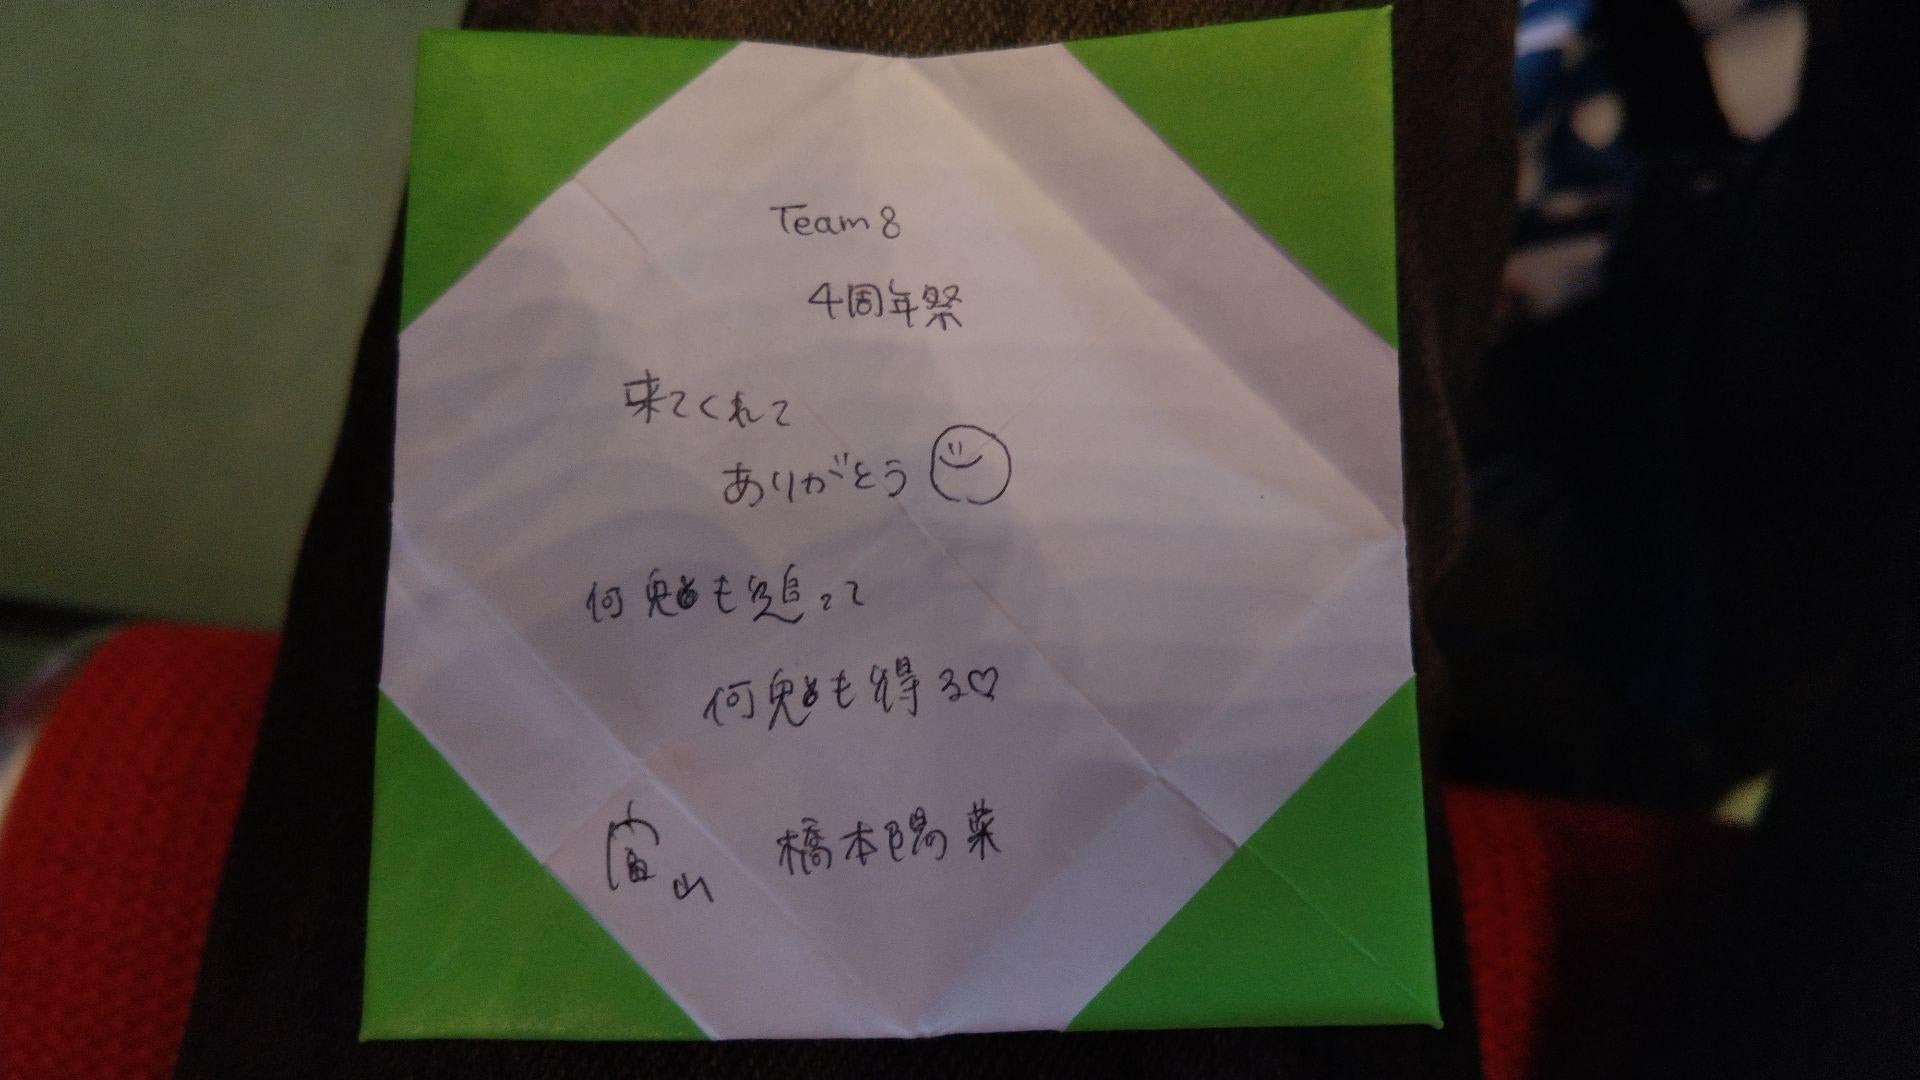 Team 8
4周年祭
来てくれて
ありがとう
何兎も追って
何兎も得る♡
富山 橋本陽菜